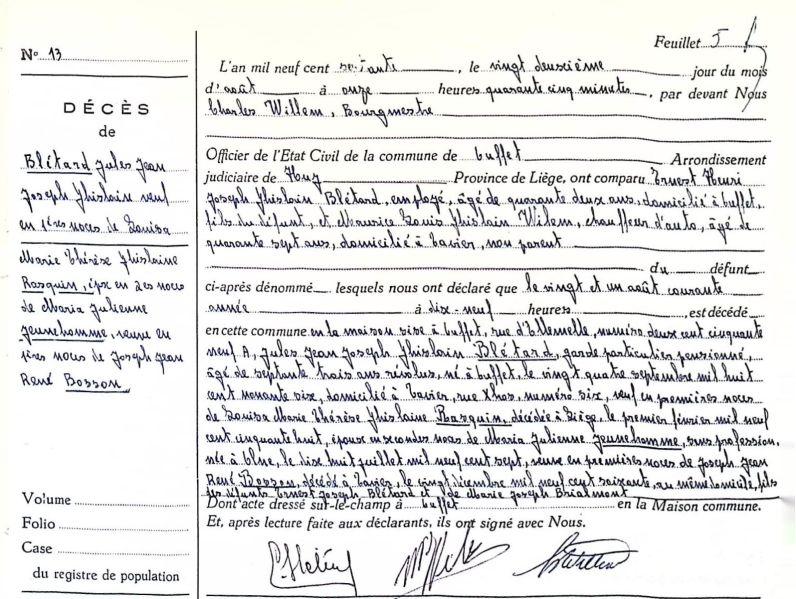 Nº 13
DÉCÈS
de
Blétard Jules Jean
Joseph Ghislain veuf
en 1ères noces de Louisa
Marie Thérèse Ghislaine
Rasquin, épx en 2es noces
de Maria Julienne
Jeunehomme, veuve en
1ères noces de Joseph Jean
René Bosson
Volume
Folio
Case
du registre de population
Feuillet 5
L'an mil neuf cent septante, le vingt deuxième jour du mois
d'août à onze heures quarante cinq minutes, par devant Nous
Charles Willem, Bourgmestre
Officier de l'Etat Civil de la commune de Ouffet Arrondissement
judiciaire de Huy Province de Liège, ont comparu Ernest Henri
Joseph Ghislain Blétard, employé, âgé de quarante deux ans, domicilié à Ouffet,
fils du défunt, et Maurice Louis Ghislain Wilem, chauffeur d'auto, âgé de
quarante sept ans, domicilié à Tavier, non parent
du défunt
ci-après dénommé lesquels nous ont déclaré que le vingt et un août courante
année à dix-neuf heures, est décédé
en cette commune en la maison sise à Ouffet, rue d'Ellemelle, numéro deux cent cinquante
neuf A, Jules Jean Joseph Ghislain Blétard, garde particulier pensionné,
âgé de septante trois ans révolus, né à Ouffet, le vingt quatre septembre mil huit
cent nonante six, domicilié à Tavier, rue Xhos, numéro six, veuf en premières noces
de Louisa Marie Thérèse Ghislaine Rasquin, décédée à Liège, le premier février mil neuf
cent cinquante huit, époux en secondes noces de Maria Julienne Jeunehomme, sans profession,
née à le dix huit juillet mil neuf cent sept, veuve en premières noces de Joseph Jean
René Bosson, décédé à Tavier, le vingt décembre mil neuf cent soixante, au même domicile, fils
des défunts Ernest Joseph Blétard et de Marie Joseph Brialmont
Dont acte dressé sur-le-champ à Ouffet en la Maison commune.
Et, après lecture faite aux déclarants, ils ont signé avec Nous.